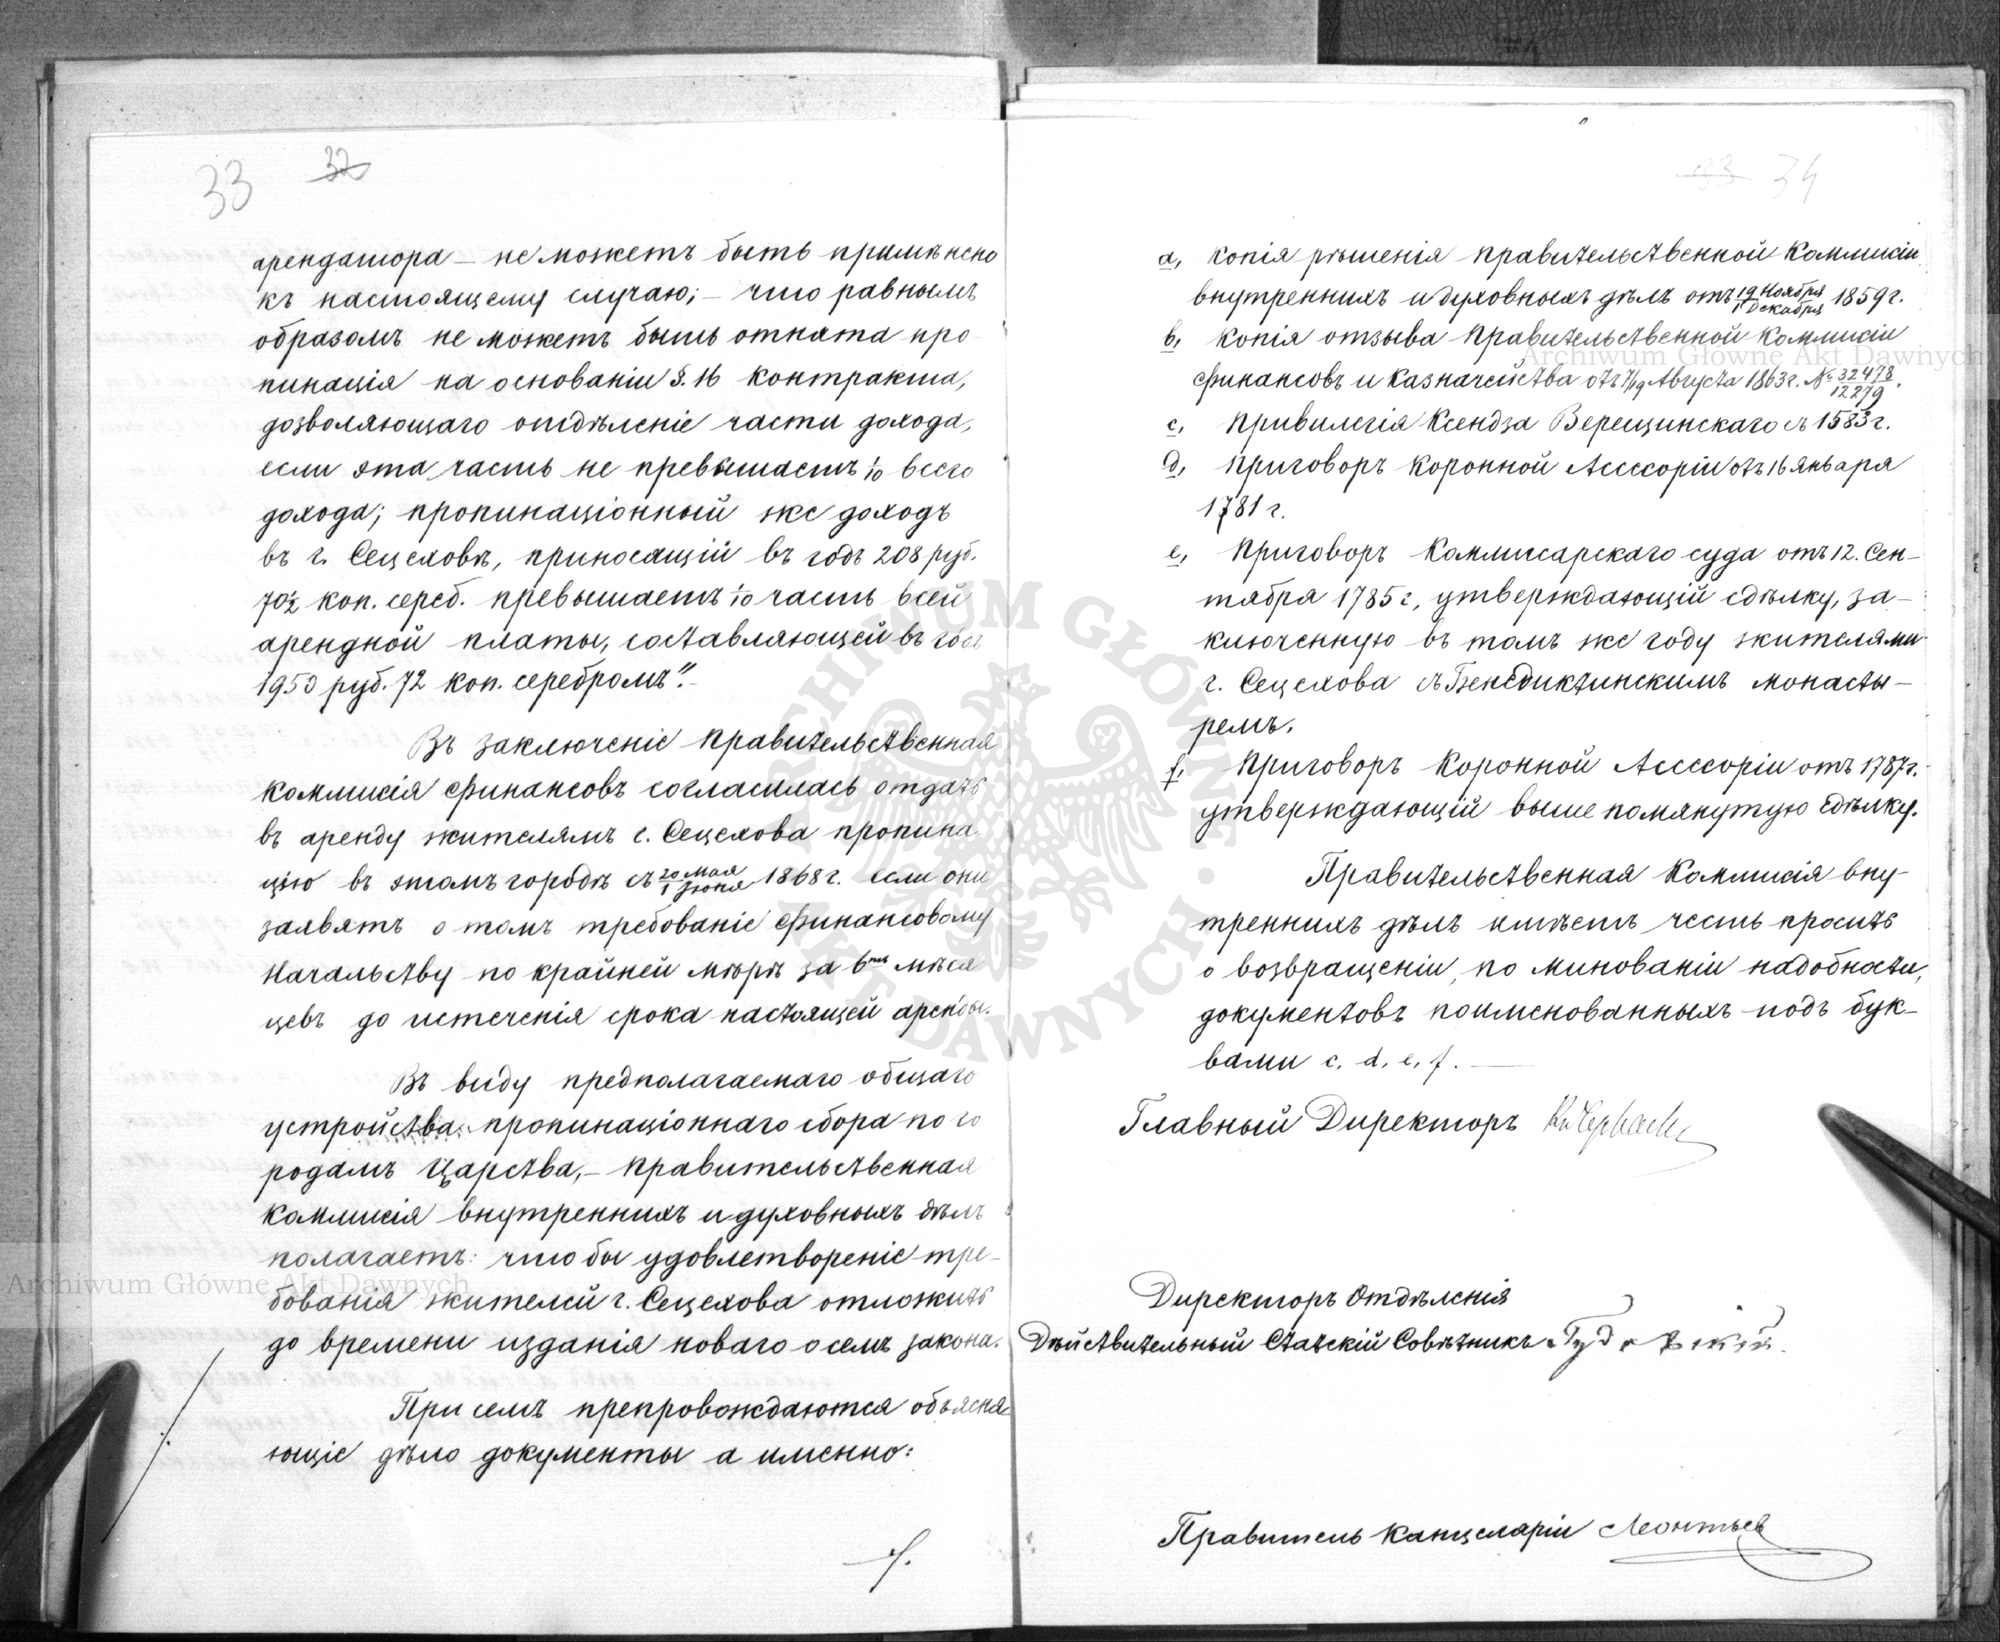 33 32
арендатора — не можетъ быть примѣнено
къ настоящему случаю; — что равнымъ
образомъ не можетъ быть отнята про-
пинація на основаніи §. 16 контракта,
дозволяющаго отдѣленіе части дохода,
если эта часть не превышаетъ 1/10 всего
дохода; пропинаціонный же доходъ
въ г. Сецеховѣ, приносящій въ годъ 208 руб.
70½ коп. сереб. превышаетъ 1/10 часть всей
арендной платы, составляющей въ годъ
1950 руб. 72 коп. серебромъ".—
Въ заключеніе Правительственная
Коммисія Финансовъ согласилась отдать
въ аренду жителямъ г. Сецехова пропина-
цію въ этомъ городѣ съ 20 Мая/1 Іюня 1868 г. если они
заявятъ о томъ требованіе Финансовому
Начальству по крайней мѣрѣ за 6ть мѣся
цевъ до истеченія срока настоящей аренды.
Въ виду предполагаемаго общаго
устройства пропинаціоннаго сбора по го
родамъ Царства, — Правительственная
Коммисія внутреннихъ и духовныхъ дѣлъ
полагаетъ: что бы удовлетвореніе тре-
бованія жителей г. Сецехова отложить
до времени изданія новаго о семъ закона.
При семъ препровождаются объясня-
ющіе дѣло документы а именно:
33 34
a, Копія рѣшенія Правительственной Коммисіи
внутреннихъ и духовныхъ дѣлъ отъ 19 Ноября/1 Декабря 1859 г.
b, Копія отзыва Правительственной Коммисіи
Финансовъ и Казначейства отъ 7/19 Августа 1863 г. № 32478/12279.
c, Привилегія Ксендза Верещинскаго съ 1583 г.
d, Приговоръ Коронной Ассесоріи отъ 16 Января
1781 г.
e, Приговоръ Коммисарскаго суда отъ 12. Сен-
тября 1785 г, утверждающій сдѣлку, за-
ключенную въ томъ же году жителями
г. Сецехова съ Бенедиктинскимъ монасты-
ремъ.
f, Приговоръ Коронной Ассесоріи отъ 1787 г.
утверждающій выше помянутую сдѣлку.
Правительственная Коммисія вну-
треннихъ дѣлъ имѣетъ честь просить
о возвращеніи, по минованіи надобности,
документовъ поименованныхъ подъ бук-
вами c. d. e. f. —
Главный Директоръ Кн Черкаск
Директоръ Отдѣленія
Дѣйствительный Статскій Совѣтникъ
Правитель Канцеляріи Леонтьев
Archiwum Główne Akt Dawnych
Archiwum Główne Akt Dawnych
ARCHIWUM GŁÓWNE AKT DAWNYCH